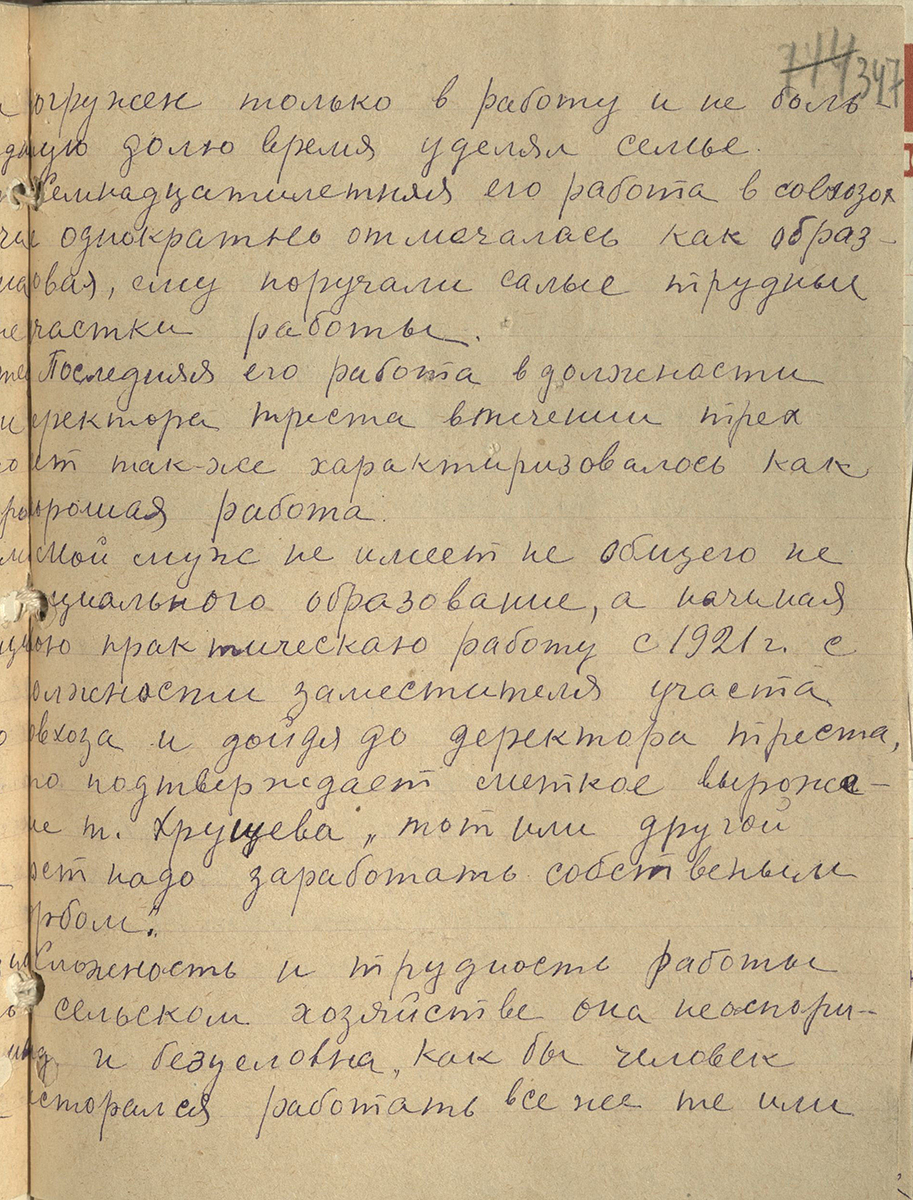 744 347
огружен только в работу и не боль
шую долю время уделял семье.
Семнадцатилетняя его работа в совхозах
однократно отмечалась как образ-
овая, ему поручали самые трудные
частки работы.
Последняя его работа в должности
ректора треста втечении трех
ет так-же характиризовалось как
орошая работа.
Мой муж не имеет не общего не
циального образование, а начиная
ою практическаю работу с 1921 г. с
олжности заместителя участа
овхоза и дойдя до деректора треста,
то подтверждает меткое выроже-
ие т. Хрущева „тот или другой
ост надо заработать собственым
рбом".
Сложность и трудность работы
сельском хозяйстве она неоспори-
и безусловна, как бы человек
сторался работать все же те или